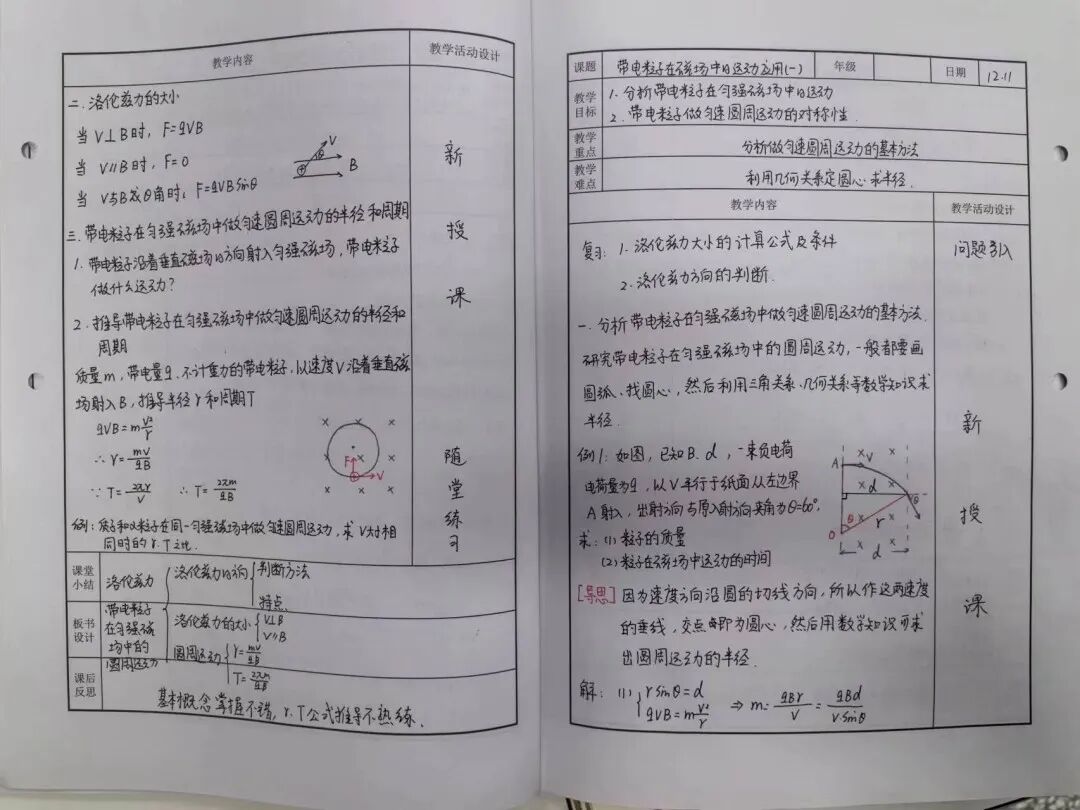 教学内容
教学活动设计
二.洛伦兹力的大小
当 V⊥B时, F=qVB
当 V∥B时, F=0
当 V与B成θ角时, F=qVBsinθ
V
θ
B
三.带电粒子在匀强磁场中做匀速圆周运动的半径和周期
1.带电粒子沿着垂直磁场的方向射入匀强磁场,带电粒子
做什么运动?
2.推导带电粒子在匀强磁场中做匀速圆周运动的半径和
周期
质量m,带电量q.不计重力的带电粒子,以速度V沿着垂直磁
场射入B,推导半径r和周期T
qVB=mV²/r
∴ r=mV/qB
∵ T=2πr/V ∴ T=2πm/qB
F
V
例:质子和α粒子在同一匀强磁场中做匀速圆周运动,求V大小相
同时的r.T之比.
新
授
课
随
堂
练
习
课堂
小结
板书
设计
洛伦兹力
洛伦兹力的方向
判断方法
特点
洛伦兹力的大小
V⊥B
V∥B
带电粒子
在匀强磁
场中的
圆周运动
圆周运动
r=mV/qB
T=2πm/qB
课后
反思
基本概念掌握不错,r.T公式推导不熟练.
课题
带电粒子在磁场中的运动应用(一)
年级
日期
12.11
教学
目标
1.分析带电粒子在匀强磁场中的运动
2.带电粒子做匀速圆周运动的对称性.
教学
重点
分析做匀速圆周运动的基本方法
教学
难点
利用几何关系定圆心求半径.
教学内容
教学活动设计
复习: 1.洛伦兹力大小的计算公式及条件
2.洛伦兹力方向的判断.
问题引入
一.分析带电粒子在匀强磁场中做匀速圆周运动的基本方法.
研究带电粒子在匀强磁场中的圆周运动,一般都要画
圆弧、找圆心,然后利用三角关系、几何关系等数学知识求
半径.
例1:如图,已知B.d,一束负电荷
电荷量为q,以V平行于纸面从左边界
A射入,出射方向与原入射方向夹角为θ=60°,
求:(1)粒子的质量
(2)粒子在磁场中运动的时间
A
V
d
θ
θ
r
O
d
[导思]因为速度方向沿圆的切线方向,所以作这两速度
的垂线,交点即为圆心,然后用数学知识可求
出圆周运动的半径.
解: (1) { rsinθ=d
qVB=mV²/r ⇒ m=qBr/V=qBd/Vsinθ
新
授
课